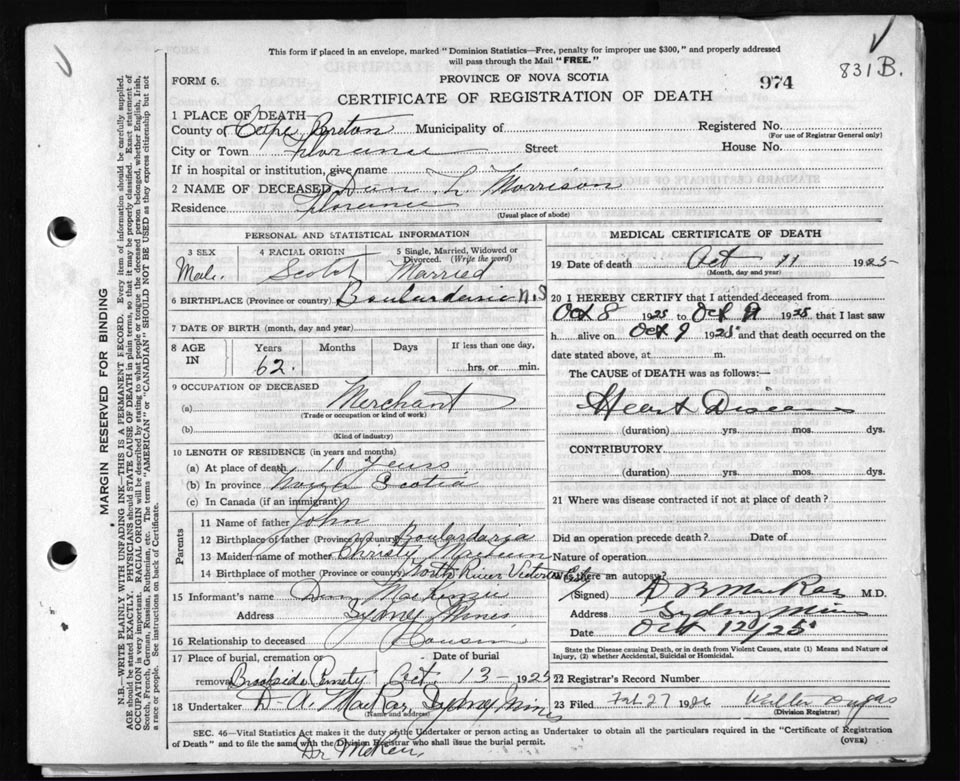 This form if placed in an envelope, marked "Dominion Statistics—Free, penalty for improper use $300," and properly addressed
will pass through the Mail "FREE."
831B.
FORM 6.
PROVINCE OF NOVA SCOTIA
974
CERTIFICATE OF REGISTRATION OF DEATH
1 PLACE OF DEATH
County of Cape Breton Municipality of
Registered No.
(For use of Registrar General only)
City or Town Florence Street
House No.
If in hospital or institution, give name
2 NAME OF DECEASED Dan L. Morrison
Residence Florence
(Usual place of abode)
PERSONAL AND STATISTICAL INFORMATION
3 SEX
Male.
4 RACIAL ORIGIN
Scotch
5 Single, Married, Widowed or
Divorced. (Write the word)
Married
6 BIRTHPLACE (Province or country) Boularderie N.S
7 DATE OF BIRTH (month, day and year)
8 AGE
IN
Years
62
Months
Days
If less than one day,
hrs. or min.
9 OCCUPATION OF DECEASED
(a) Merchant
(Trade or occupation or kind of work)
(b)
(Kind of industry)
10 LENGTH OF RESIDENCE (in years and months)
(a) At place of death 10 Years
(b) In province Nova Scotia
(c) In Canada (if an immigrant)
Parents
11 Name of father John
12 Birthplace of father (Province or country)
13 Maiden name of mother Christy
14 Birthplace of mother (Province or country) North River Victoria
15 Informant's name Dan MacKenzie
Address Sydney Mines,
16 Relationship to deceased Cousin
17 Place of burial, cremation or
removal Brookside
Date of burial
Oct. 13 - 1925
18 Undertaker D. A. Sydney Mines
(Name and address)
MEDICAL CERTIFICATE OF DEATH
19 Date of death Oct 11 1925
(Month, day and year)
20 I HEREBY CERTIFY that I attended deceased from
Oct 8 1925 to Oct 1925 that I last saw
h alive on Oct 9 1925 and that death occurred on the
date stated above, at m.
The CAUSE of DEATH was as follows:—
Heart Disease
(duration) yrs. mos. dys.
CONTRIBUTORY.
(duration) yrs. mos. dys.
21 Where was disease contracted if not at place of death?
Did an operation precede death? Date of
Nature of operation
Was there an autopsy?
(Signed) D B MacRae M.D.
Address Sydney Mines
Date Oct 12/25
State the Disease causing Death, or in death from Violent Causes, state (1) Means and Nature of
Injury, (2) whether Accidental, Suicidal or Homicidal.
22 Registered Record Number
23 Filed Feb 27 19
(Division Registrar)
SEC. 46—Vital Statistics Act makes it the duty of the Undertaker or person acting as Undertaker to obtain all the particulars required in the "Certificate of Registration
of Death" and to file the same with the Division Registrar who shall issue the burial permit.
(OVER)
Dr
MARGIN RESERVED FOR BINDING
N.B.—WRITE PLAINLY WITH UNFADING INK—THIS IS A PERMANENT RECORD. Every item of information should be carefully supplied.
AGE should be stated EXACTLY. PHYSICIANS should STATE CAUSE OF DEATH in plain terms, so that it may be properly classified. Exact statement of
OCCUPATION is very important. RACIAL ORIGIN will be described by stating to what people or tongue the deceased person belonged, whether English, Irish,
Scotch, French, German, Russian, Ruthenian, etc. The terms "AMERICAN" or "CANADIAN" SHOULD NOT BE USED as they express citizenship but not
a race or people. See instructions on back of Certificate.